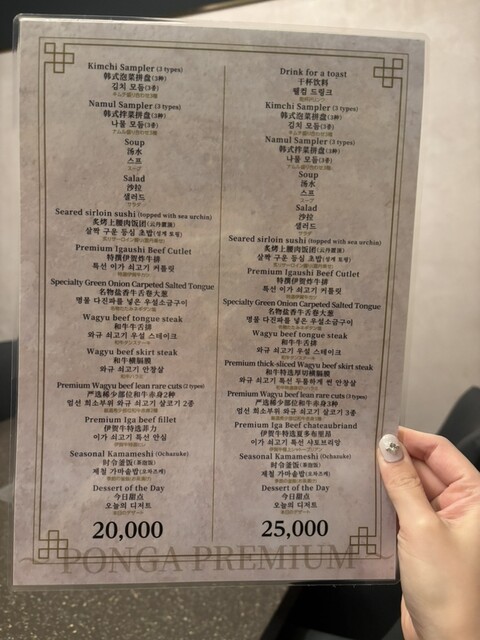 Kimchi Sampler (3 types)
韩式泡菜拼盘(3种)
김치 모듬(3종)
キムチ盛り合わせ3種
Namul Sampler (3 types)
韩式拌菜拼盘(3种)
나물 모듬(3종)
ナムル盛り合わせ3種
Soup
汤水
스프
スープ
Salad
沙拉
샐러드
サラダ
Seared sirloin sushi (topped with sea urchin)
炙烤上腰肉饭团(云丹置顶)
살짝 구운 등심 초밥(성게 토핑)
Premium Igaushi Beef Cutlet
特撰伊贺炸牛排
특선 이가 쇠고기 커틀릿
Specialty Green Onion Carpeted Salted Tongue
名物盐香牛舌卷大葱
명물 다진파를 넣은 우설소금구이
Wagyu beef tongue steak
和牛牛舌排
와규 쇠고기 우설 스테이크
和牛タンステーキ
Wagyu beef skirt steak
和牛横膈膜
와규 쇠고기 안창살
和牛ハラミ
Premium Wagyu beef lean rare cuts (2 types)
严选稀少部位和牛赤身2种
엄선 희소부위 와규 쇠고기 살코기 2종
Premium Iga beef fillet
伊贺牛特选菲力
이가 쇠고기 특선 안심
Seasonal Kamameshi (Ochazuke)
时令釜饭(茶泡饭)
제철 가마솥밥(오차즈케)
季節の釜飯(お茶漬け)
Dessert of the Day
今日甜点
오늘의 디저트
本日のデザート
20,000
Drink for a toast
干杯饮料
웰컴 드링크
乾杯ドリンク
Kimchi Sampler (3 types)
韩式泡菜拼盘(3种)
김치 모듬(3종)
キムチ盛り合わせ3種
Namul Sampler (3 types)
韩式拌菜拼盘(3种)
나물 모듬(3종)
ナムル盛り合わせ3種
Soup
汤水
스프
スープ
Salad
沙拉
샐러드
サラダ
Seared sirloin sushi (topped with sea urchin)
炙烤上腰肉饭团(云丹置顶)
살짝 구운 등심 초밥(성게 토핑)
Premium Igaushi Beef Cutlet
特撰伊贺炸牛排
특선 이가 쇠고기 커틀릿
Specialty Green Onion Carpeted Salted Tongue
名物盐香牛舌卷大葱
명물 다진파를 넣은 우설소금구이
Wagyu beef tongue steak
和牛牛舌排
와규 쇠고기 우설 스테이크
和牛タンステーキ
Premium thick-sliced Wagyu beef skirt steak
和牛特选厚切横膈膜
와규 쇠고기 특선 두툼하게 썬 안창살
Premium Wagyu beef lean rare cuts (3 types)
严选稀少部位和牛赤身3种
엄선 희소부위 와규 쇠고기 살코기 3종
Premium Iga Beef chateaubriand
伊贺牛特选夏多布里昂
이가 쇠고기 특선 샤토브리앙
Seasonal Kamameshi (Ochazuke)
时令釜饭(茶泡饭)
제철 가마솥밥(오차즈케)
季節の釜飯(お茶漬け)
Dessert of the Day
今日甜点
오늘의 디저트
本日のデザート
25,000
PONGA PREMIUM